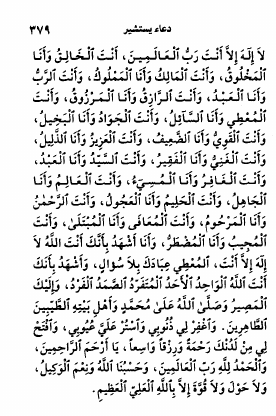 دعاء يستشير ٣٧٩
لَا إِلَهَ إِلَّا أَنْتَ رَبُّ الْعَالَمِينَ، أَنْتَ الْخَالِقُ وَأَنَا
الْمَخْلُوقُ، وَأَنْتَ الْمَالِكُ وَأَنَا الْمَمْلُوكُ، وَأَنْتَ الرَّبُّ
وَأَنَا الْعَبْدُ، وَأَنْتَ الرَّازِقُ وَأَنَا الْمَرْزُوقُ، وَأَنْتَ
الْمُعْطِي وَأَنَا السَّائِلُ، وَأَنْتَ الْجَوَادُ وَأَنَا الْبَخِيلُ،
وَأَنْتَ الْقَوِيُّ وَأَنَا الضَّعِيفُ، وَأَنْتَ الْعَزِيزُ وَأَنَا الذَّلِيلُ،
وَأَنْتَ الْغَنِيُّ وَأَنَا الْفَقِيرُ، وَأَنْتَ السَّيِّدُ وَأَنَا الْعَبْدُ،
وَأَنْتَ الْغَافِرُ وَأَنَا الْمُسِيءُ، وَأَنْتَ الْعَالِمُ وَأَنَا
الْجَاهِلُ، وَأَنْتَ الْحَلِيمُ وَأَنَا الْعَجُولُ، وَأَنْتَ الرَّحْمٰنُ
وَأَنَا الْمَرْحُومُ، وَأَنْتَ الْمُعَافِي وَأَنَا الْمُبْتَلَىٰ، وَأَنْتَ
الْمُجِيبُ وَأَنَا الْمُضْطَرُّ، وَأَنَا أَشْهَدُ بِأَنَّكَ أَنْتَ اللَّهُ لَا
إِلَهَ إِلَّا أَنْتَ، الْمُعْطِي عِبَادَكَ بِلَا سُؤَالٍ، وَأَشْهَدُ بِأَنَّكَ
أَنْتَ اللَّهُ الْوَاحِدُ الْأَحَدُ الْمُتَفَرِّدُ الصَّمَدُ الْفَرْدُ، وَإِلَيْكَ
الْمَصِيرُ وَصَلَّى اللَّهُ عَلَىٰ مُحَمَّدٍ وَأَهْلِ بَيْتِهِ الطَّيِّبِينَ
الطَّاهِرِينَ. وَاغْفِرْ لِي ذُنُوبِي وَاسْتُرْ عَلَيَّ عُيُوبِي، وَافْتَحْ
لِي مِنْ لَدُنْكَ رَحْمَةً وَرِزْقاً وَاسِعاً، يَا أَرْحَمَ الرَّاحِمِينَ،
وَالْحَمْدُ لِلَّهِ رَبِّ الْعَالَمِينَ، وَحَسْبُنَا اللَّهُ وَنِعْمَ الْوَكِيلُ،
وَلَا حَوْلَ وَلَا قُوَّةَ إِلَّا بِاللَّهِ الْعَلِيِّ الْعَظِيمِ.